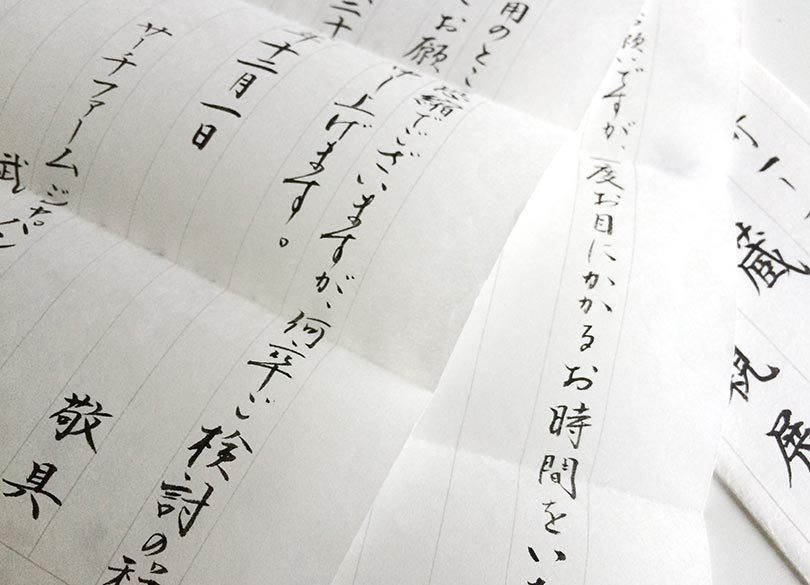 蔵
祝
展
願いですが、一度お目にかかるお時間をい
用のとこ
お願
縮でございますが、何卒ご検討の程
上げます。
敬具
二十
十二月一日
サーチファームジャパン
武